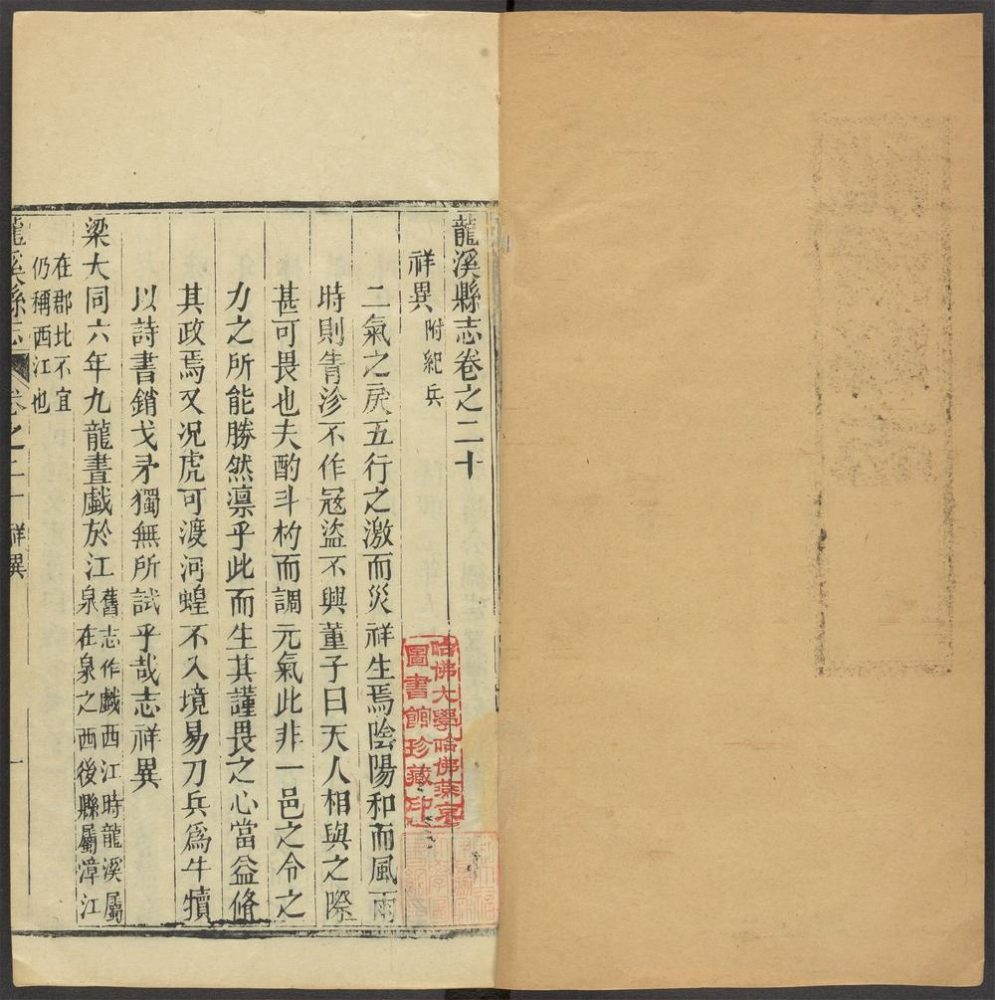 龍溪縣志卷之二十
祥異 附紀兵
二氣之戾五行之激而災祥生焉陰陽和而風雨
時則眚沴不作冦盜不興董子曰天人相與之際
甚可畏也夫酌斗杓而調元氣此非一邑之令之
力之所能勝然凛乎此而生其謹畏之心當益脩
其政焉又况虎可渡河蝗不入境易刀兵爲牛犢
以詩書銷戈矛獨無所試乎哉志祥異
梁大同六年九龍晝戲於江
舊志作戲西江時龍溪屬
泉在泉之西後縣屬漳江
在郡北不宜
仍稱西江也
龍溪縣志 卷之二十 祥異 一
哈佛大學哈佛燕京
圖書館珍藏印